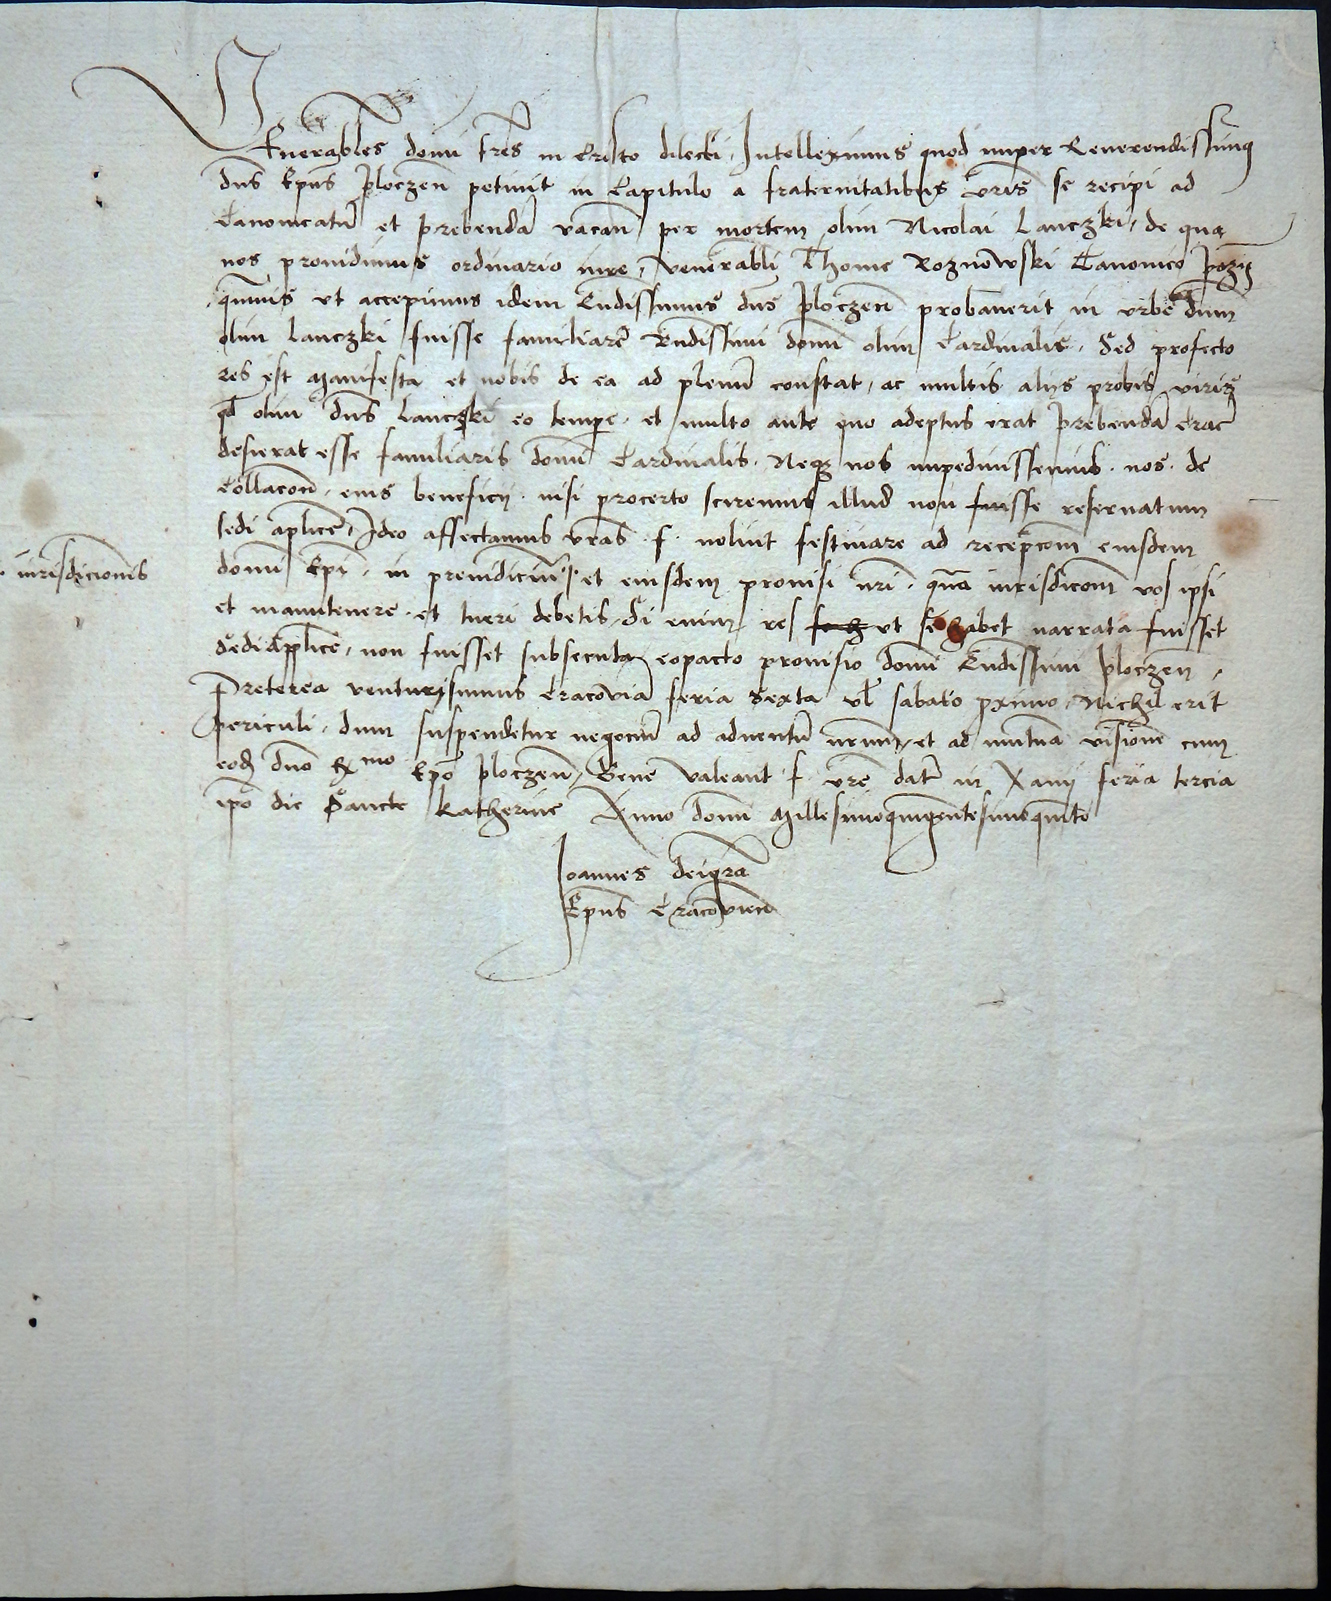 Venerabiles domi fres in Cristo dilecti. Intelleximus quod nuper Reverendissimus
dns Epus ploczen petivit in Capitulo a fraternitatibus vris se recipi ad
Canonicatu et prebenda vacan per mortem olim Nicolai Lanczki, de qua
nos providimus ordinario iure, venerabli Thome Roznowski Canonico pozn
quavis ut accepimus idem Rndissimus dns ploczen probaverit in urbe dum
olim Lanczki fuisse familiare Rndissimi domi olim Cardinalis. Sed profecto
res est manifesta et nobis de ea ad plenu constat, ac multis alijs probis viris
qd olim dns Lanczki eo tempe et multo ante quo adeptus erat prebenda Crac
desierat esse familiaris domi Cardinalis. Neqz nos impedivissemus nos de
Collacon eius beneficij nisi procerto sciremus illud non fuisse reservatum
sedi aplice, Ideo affectamus vras f. nolint festinare ad recepcom eiusdem
domi Epi in preiudiciu et eiusdem provisi nri qua iurisdicom vos ipsi
iurisdicionis
et manutenere et tueri debetis. Si enim res ut se habet narrata fuisset
Sedi Applice, non fuisset subsecuta eopacto provisio domi Rndissimi ploczen,
Preterea venturi sumus Cracovia feria sexta vl sabato pximo, Nichil erit
periculi, dum suspendetur negociu ad adventu nrum, et ad mutua visione cum
eod dno Rmo Epo ploczen, Bene valeant f. vre dat in Xanij feria tercia
ipo die Sancte Katherine Anno domi Millesimoquingentesimoquinto
Joannes dei gra
Epus Cracovien